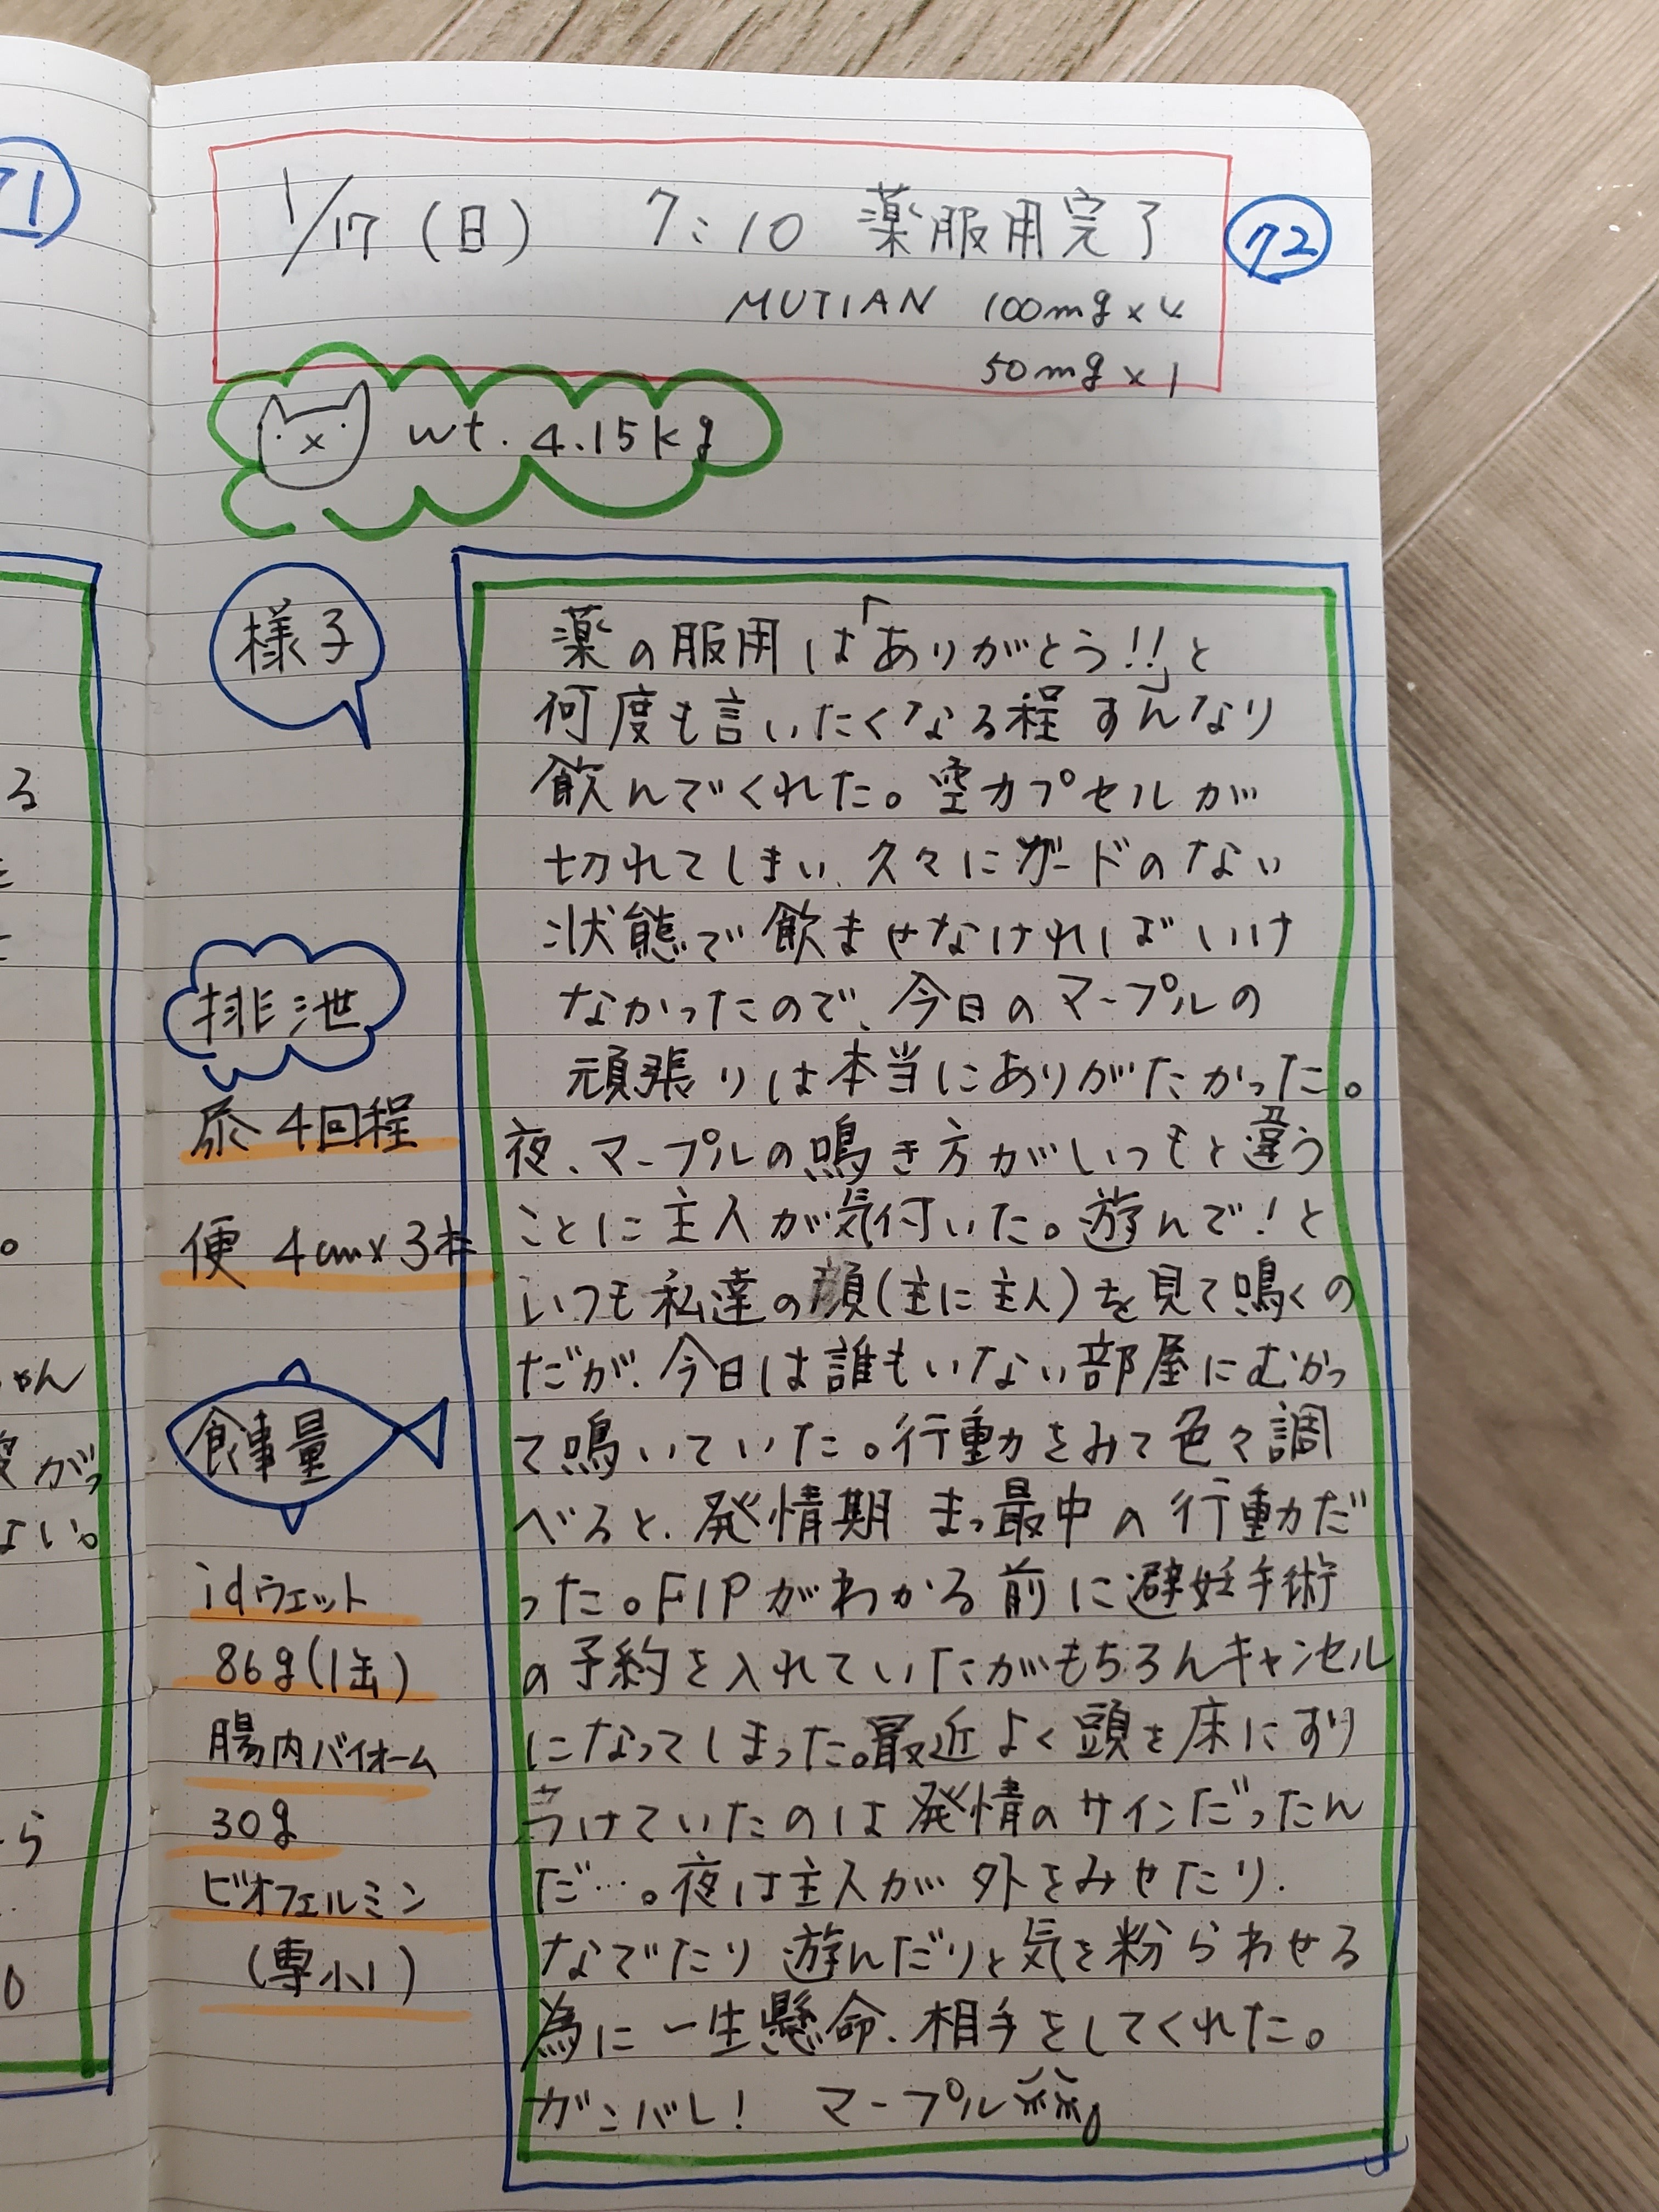 71
1/17（日） 7:10 薬服用完了
72
MUTIAN 100mg×4
50mg×1
wt. 4.15kg
様子
薬の服用は「ありがとう!!」と
何度も言いたくなる程すんなり
飲んでくれた。空カプセルが
切れてしまい、久々にガードのない
状態で飲ませなければいけ
なかったので、今日のマープルの
頑張りは本当にありがたかった。
夜、マープルの鳴き方がいつもと違う
ことに主人が気付いた。遊んで！と
いつも私達の顔(主に主人)を見て鳴くの
だが、今日は誰もいない部屋にむかっ
て鳴いていた。行動をみて色々調
べると、発情期まっ最中の行動だ
った。FIPがわかる前に避妊手術
の予約を入れていたがもちろんキャンセル
になってしまった。最近よく頭を床にすり
つけていたのは発情のサインだったん
だ…。夜は主人が外をみせたり、
なでたり遊んだりと気を粉らわせる
為に一生懸命、相手をしてくれた。
ガンバレ！ マープル
排泄
尿 4回程
便 4cm×3本
食事量
idウェット
86g(1缶)
腸内バイオーム
30g
ビオフェルミン
(専小1)
る
。
ゃん
がっ
ない。
ら
0